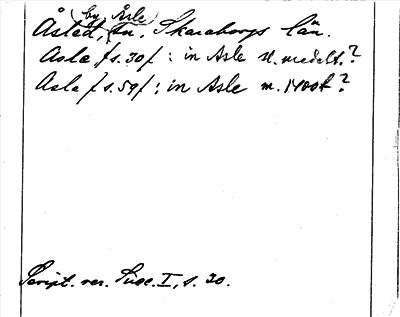 (by Åsle)
Åsled, sn, Skaraborgs län.
Asla /s. 30/ : in Asle sl. medelt.?
Asla /s. 59/ : in Asle m. 1400t?
Script. rer. Suec. I, s. 30.